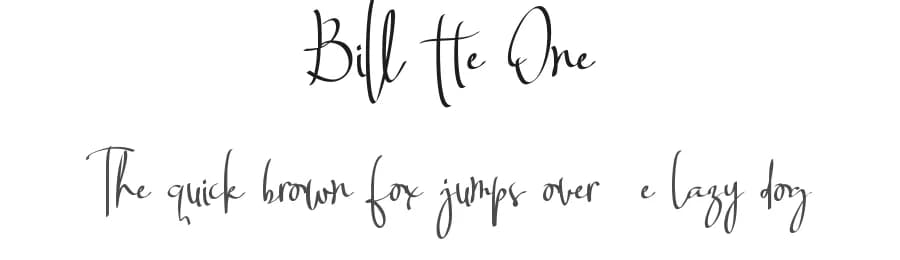 Bill tte One
The quick brown fox jumps over e lazy dog